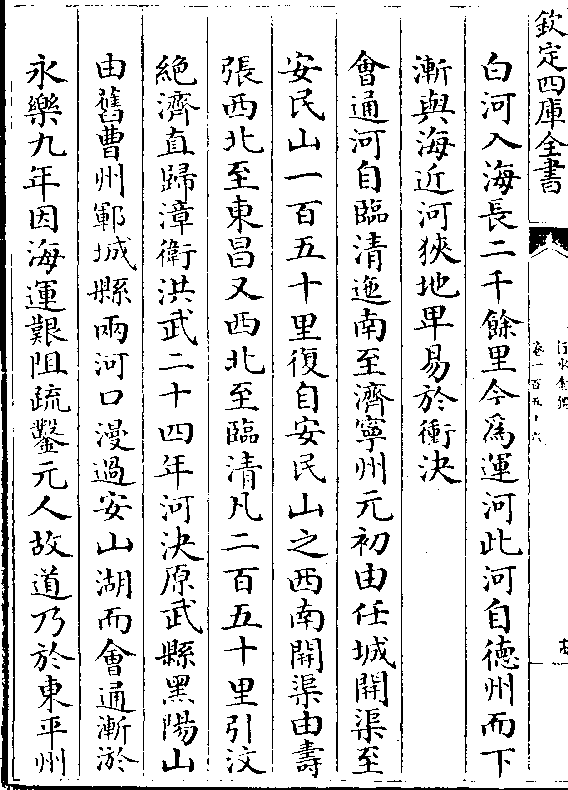 欽定四庫全書
白河入海長二千餘里今為運河此河自德州而下
漸與海近河狹地卑易於衝決
會通河自臨清迤南至濟寧州元初由任城開渠至
安民山一百五十里復自安民山之西南開渠由壽
張西北至東昌又西北至臨清凡二百五十里引汶
絕濟直歸漳衛洪武二十四年河決原武縣黑陽山
由舊曹州鄆城縣兩河口漫過安山湖而會通漸淤
永樂九年因海運艱阻疏鑿元人故道乃於東平州